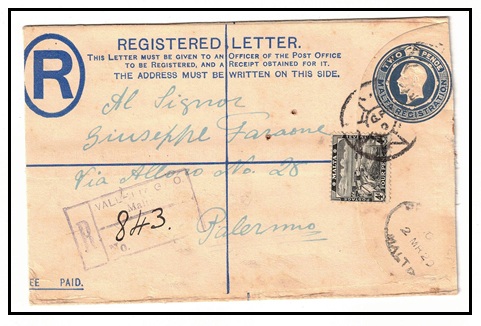 REGISTERED LETTER.
THIS LETTER MUST BE GIVEN TO AN OFFICER OF THE POST OFFICE
TO BE REGISTERED, AND A RECEIPT OBTAINED FOR IT.
THE ADDRESS MUST BE WRITTEN ON THIS SIDE.
R
TWO PENCE
MALTA REGISTRATION
Al Signor
Giuseppe Faraone
Via Alloro No. 28
Palermo
MALTA
4d
VALLETTA G.P.O.
Malta
R
No.
843.
MALTA
EE PAID.